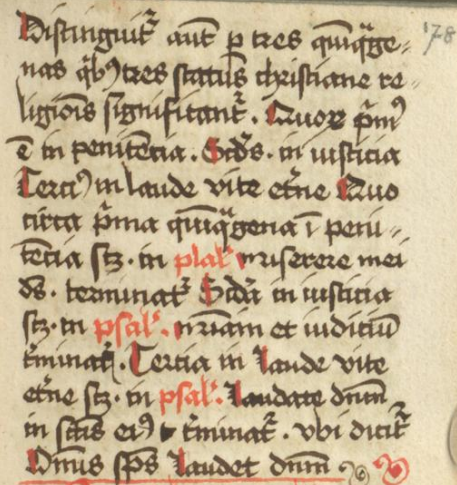 178
Distinguit᷑ aut̄ p̲ tres qui̅qᷓge-
nas qͥbꝰ tres statꝰ christiane re-
ligiōis significant᷑. Quoꝝ pͥmꝰ
ē in penitēcia. Scd̄s. in iusticia
Terciꝰ in laude vite et̄ne Quo
circa pͥma qui̅qᷓgena ī peni-
tēcia scꝫ. in psal̄ miserere mei
ds̄. terminat᷑ Scd̄a in iusticia
scꝫ. in psal̄. mīam et iudiciū
t̄minat᷑. Tercia in laude vite
et̄ne scꝫ. in psal̄. Laudate dn̄m
in scīs eiꝰ t̄minat᷑. vbi dicit᷑
Om̄is sp̄s laudet dn̄m